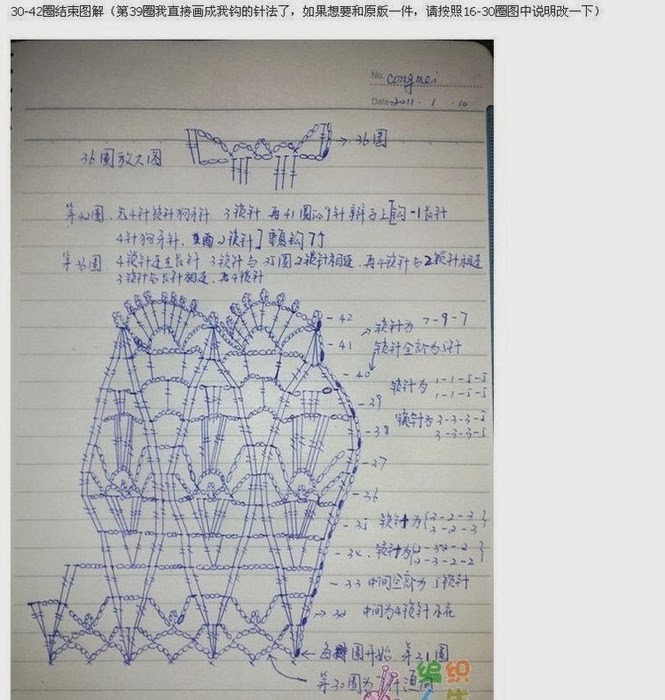 30-42圈结束图解（第39圈我直接画成我钩的针法了，如果想要和原版一件，请按照16-30圈图中说明改一下）
No. congmei
Date 2011 . 1 . 10
→36圈
36圈放大图
第42圈. 先4针锁针狗牙针. 3锁针. 再41圈的9针辫子上[钩-1长针
4针狗牙针. 2锁针] 重复钩7个
第36圈. 4锁针连立长针. 3锁针与35圈2锁针相连. 再4锁针与2锁针相连
3锁针与长针相连. 再4锁针
-42
锁针为 7-9-7
-41
锁针全部为5针
-40
锁针为 1-1-5-5
1-1-5-5
-39
锁针为 3-3-3-5
3-3-3-5
-38
-37
-36
-35 锁针为{3-2-3}
3-2-3
-34. 锁针为{2-3-2-2}
2-3-2-2
-33 中间全部为5锁针
→32 中间为4锁针
←每圈开始. 第31圈
第30圈为
编织